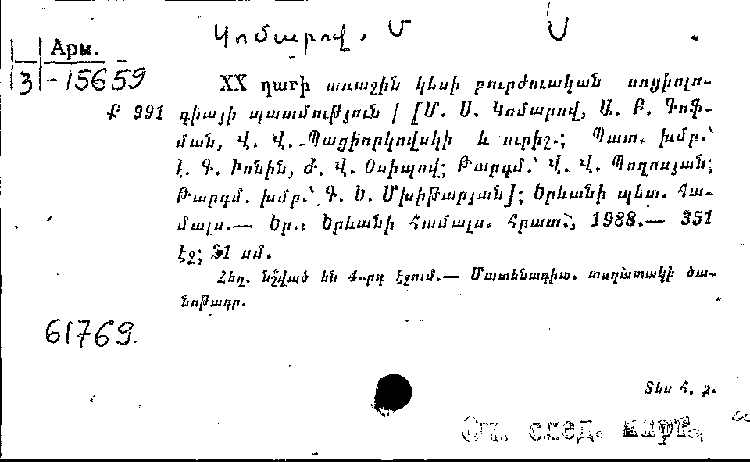 Կոմարով, Մ Ս
Арм.
3 -15659
XX դարի առաջին կեսի բուրժուական սոցիոլո-
Ք 991 գիայի պատմություն / [Մ. Ս. Կոմարով, Ա. Բ. Գոֆ-
ման, Վ. Վ. Պացիորկովսկի և ուրիշ.; Պատ. խմբ.՝
Լ. Գ. Իոնին, Ժ. Վ. Օսիպով; Թարգմ.՝ Վ. Վ. Պողոսյան;
Թարգմ. խմբ.՝ Գ. Ե. Մխիթարյան]; Երևանի պետ. Հա-
մալս.— Եր.: Երևանի Համալս. Հրատ., 1988.— 351
էջ; 21 սմ.
Հեղ. նշված են 4-րդ էջում.— Մատենագիտ. տողատակի ծա-
նոթագր.
61769.
Տես Հ. գ.
От. свод. карт.